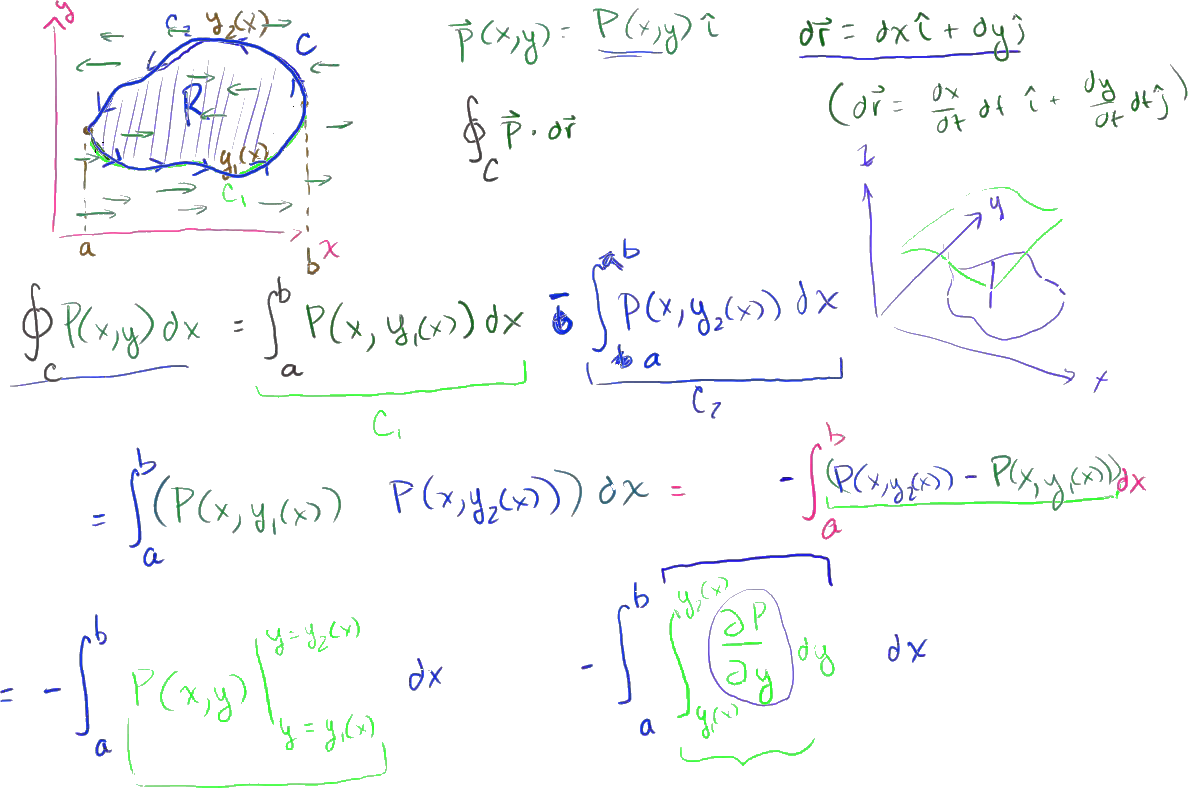 y
C₂ y₂(x) C
R
y₁(x)
C₁
a b x
P⃗(x,y) = P(x,y) î
dr⃗ = dx î + dy ĵ
(dr⃗ = dx/dt dt î + dy/dt dt ĵ)
∮_C P⃗ · dr⃗
z
y
x
∮_C P(x,y) dx = ∫_a^b P(x, y₁(x)) dx - ∫_a^b P(x, y₂(x)) dx
C₁ C₂
= ∫_a^b (P(x, y₁(x)) P(x, y₂(x))) dx = - ∫_a^b (P(x, y₂(x)) - P(x, y₁(x))) dx
= - ∫_a^b P(x,y) |_{y = y₁(x)}^{y = y₂(x)} dx - ∫_a^b ∫_{y₁(x)}^{y₂(x)} ∂P/∂y dy dx